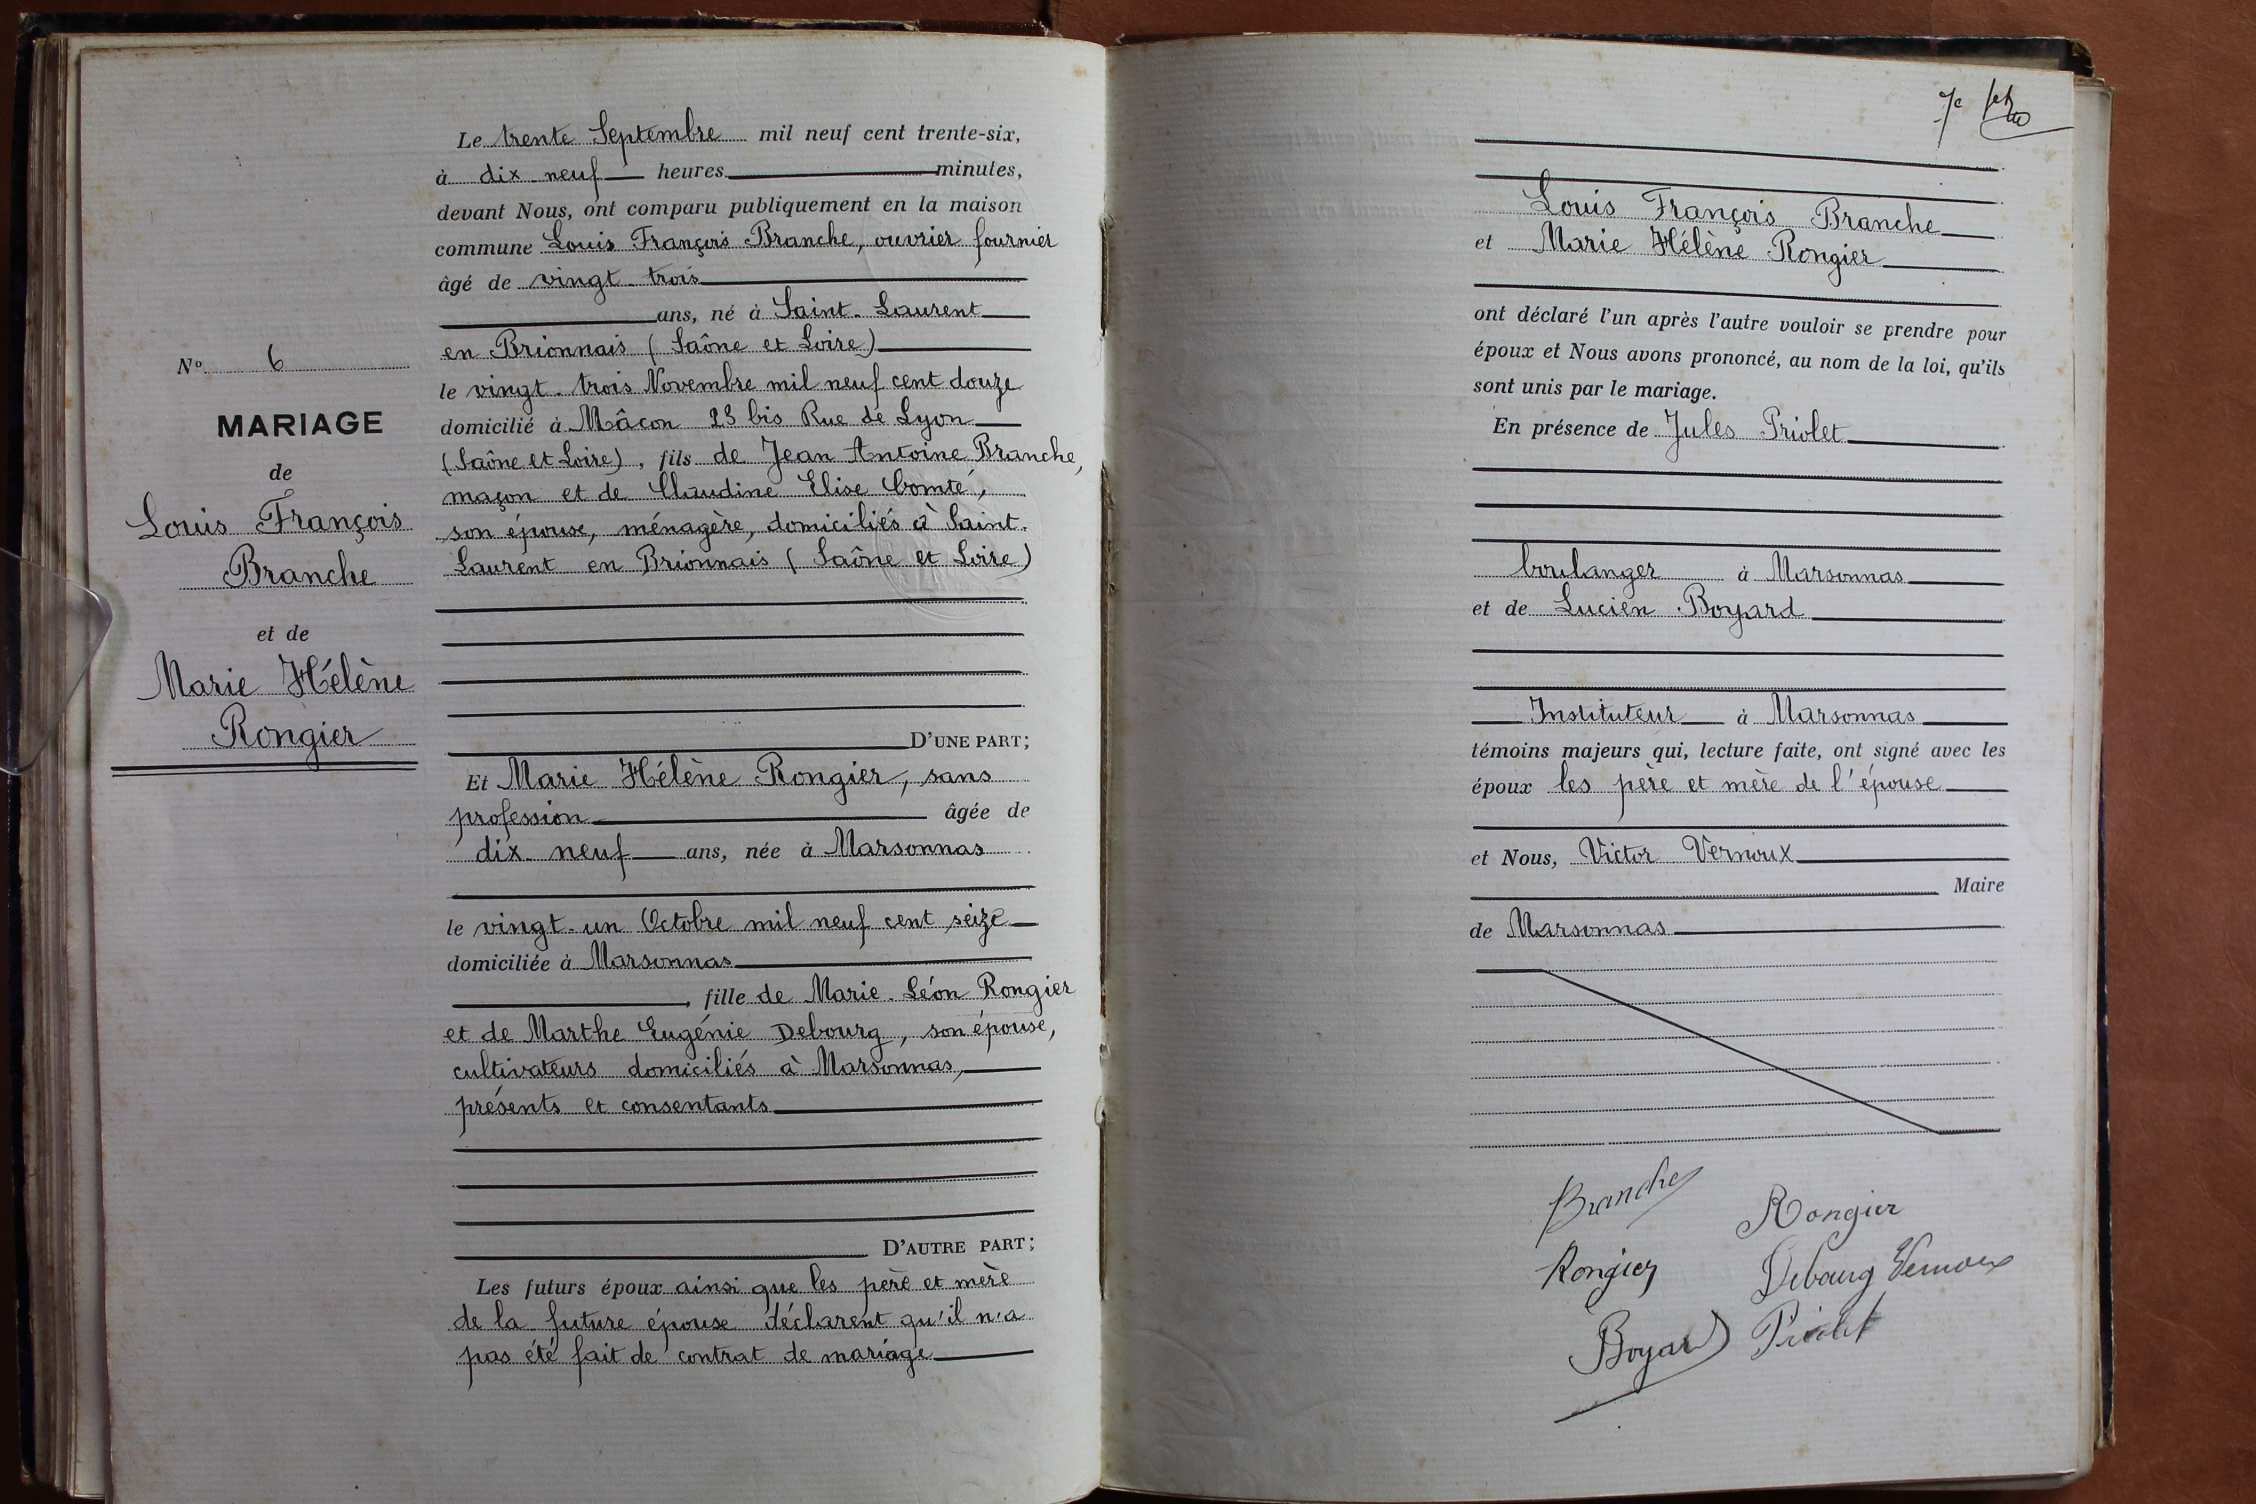 Le trente Septembre mil neuf cent trente-six,
à dix neuf heures minutes,
devant Nous, ont comparu publiquement en la maison
commune Louis François Branche, ouvrier fournier
âgé de vingt-trois
ans, né à Saint-Laurent
en Brionnais (Saône et Loire)
le vingt-trois Novembre mil neuf cent douze
domicilié à Mâcon 23 bis Rue de Lyon
(Saône et Loire), fils de Jean Antoine Branche,
maçon et de Claudine Elise Comte,
son épouse, ménagère, domiciliés à Saint-
Laurent en Brionnais (Saône et Loire)
D'UNE PART;
Et Marie Hélène Rongier, sans
profession âgée de
dix-neuf ans, née à Marsonnas
le vingt-un Octobre mil neuf cent seize
domiciliée à Marsonnas
, fille de Marie-Léon Rongier
et de Marthe Eugénie Debourg, son épouse,
cultivateurs domiciliés à Marsonnas,
présents et consentants
D'AUTRE PART;
Les futurs époux ainsi que les père et mère
de la future épouse déclarent qu'il n'a
pas été fait de contrat de mariage
No 6
MARIAGE
de
Louis François
Branche
et de
Marie Hélène
Rongier
7e
Louis François Branche
et Marie Hélène Rongier
ont déclaré l'un après l'autre vouloir se prendre pour
époux et Nous avons prononcé, au nom de la loi, qu'ils
sont unis par le mariage.
En présence de Jules Priolet
boulanger à Marsonnas
et de Lucien Boyard
Instituteur à Marsonnas
témoins majeurs qui, lecture faite, ont signé avec les
époux les père et mère de l'épouse
et Nous, Victor Vernoux
Maire
de Marsonnas
Branche Rongier
Rongier Debourg Vernoux
Boyard Priolet